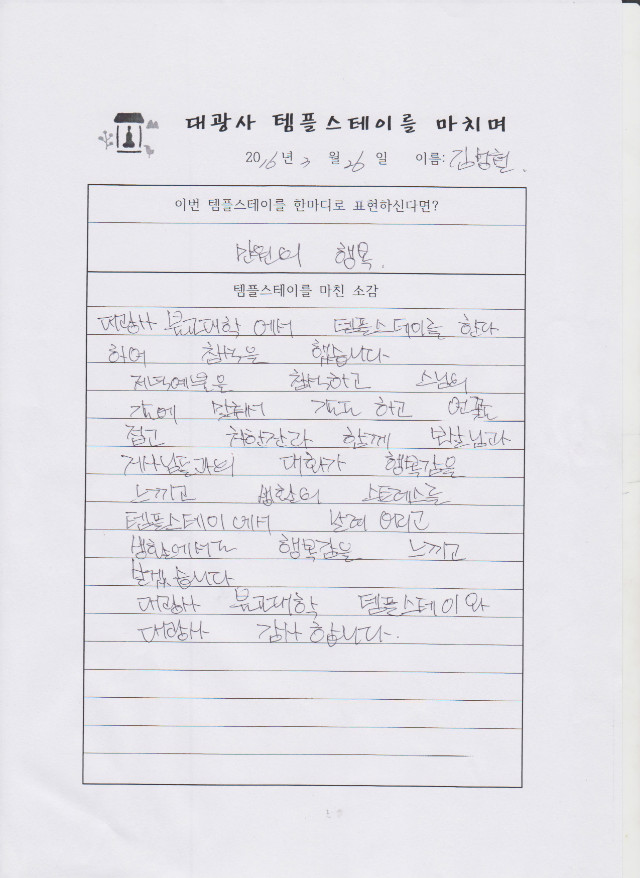 대광사 템플스테이를 마치며
2016년 3월 26일 이름:
이번 템플스테이를 한마디로 표현하신다면?
만원의 행복.
템플스테이를 마친 소감
대광사 불교대학에서 템플스테이를 한다
하여 참석을 했습니다
저녁예불을 참석하고 스님의
맞춰서 하고 연꽃도
접고 차한잔과 함께 보살님과
거사님들과의 대화가 행복감을
느끼고 생활의 스트레스를
템플스테이에서 날려 버리고
생활에서도 행복감을 느끼고
받겠습니다
대광사 불교대학 템플스테이와
대광사 감사합니다.